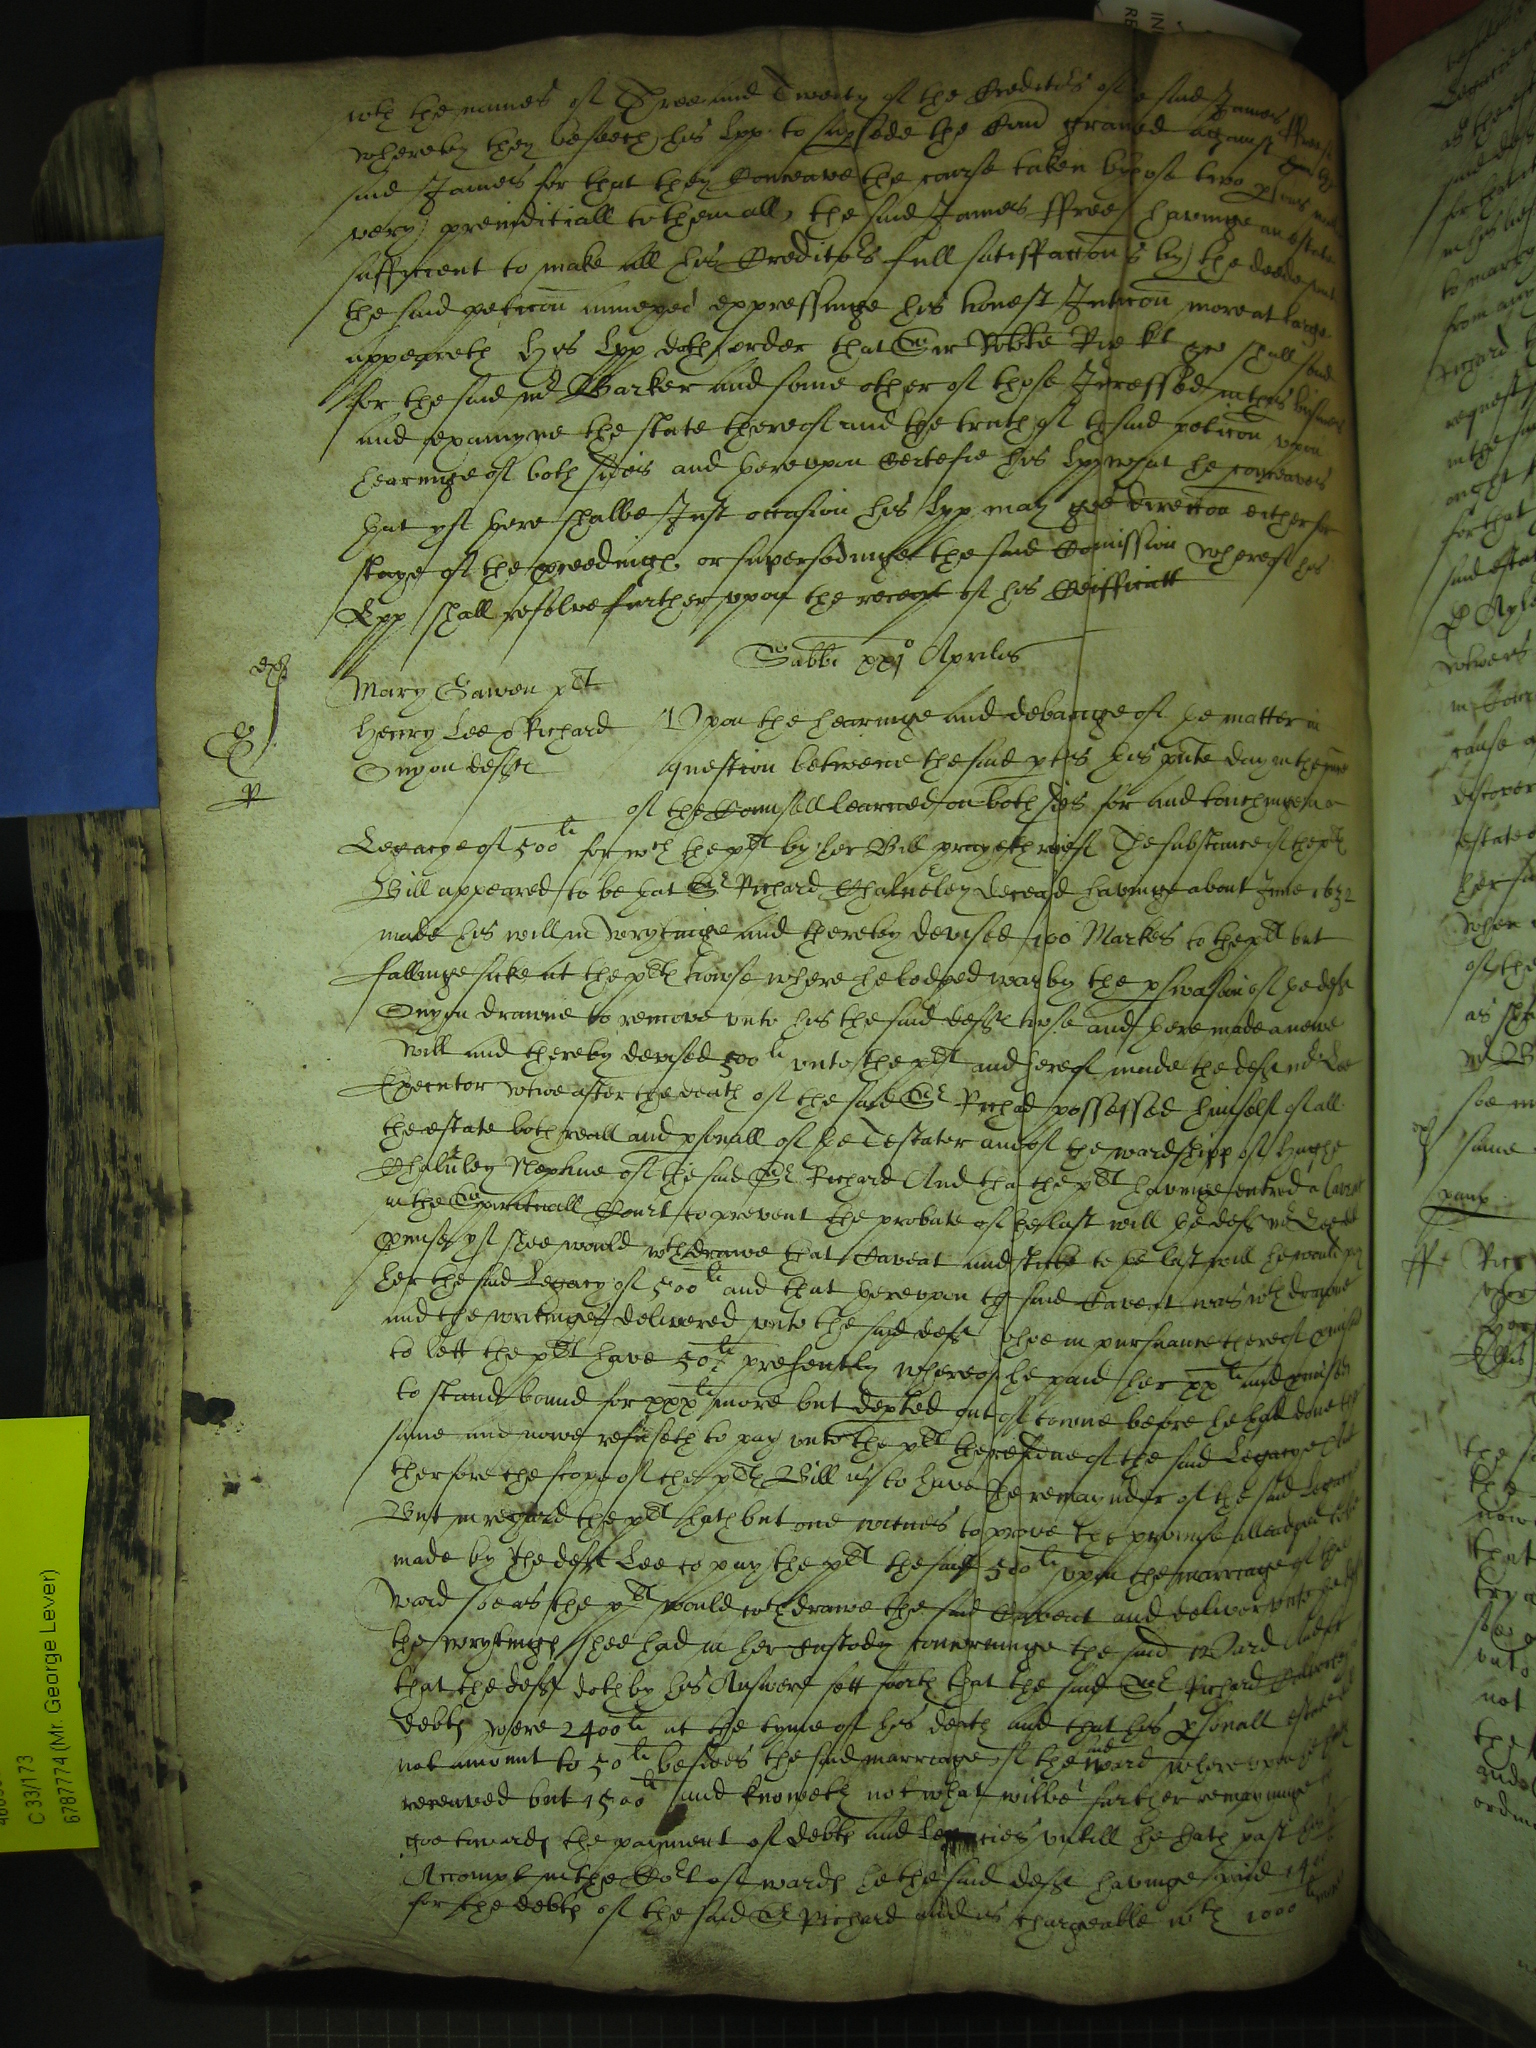 wth the names of Three and Twenty of the Creditors of the said James Ffree
whereby they beseech his Lpp to supsede the Comi graunted against him
said James for that they Conceave the course taken by those two
very preiuditiall to them all, the said James Ffree havinge an estate
sufficient to make all his Creditors full satisfaccon as by the deede
the said peticon annexed expressinge his honest Intencon more at large
appeareth His Lpp doth order that Sir Robte Rie kt shall send
for the said mr Barker and some other of those Interessed in this busines
and examyne the state thereof and the truth of the said peticon upon
hearinge of both sides and thereupon Certefie his Lpp what he conceaves
that yf there shalbe Just occasion his Lpp may give direccon either for
staye of the proceedings or supersedinge the said Comission whereof his
Lpp shall resolve further upon the receipt of his Certifficatt
Sabbi xxj o Aprilis
Mary Gawen plt
Henry Lee & Richard
Onyon defts
Upon the hearinge and debatinge of the matter in
question betweene the said pties this pnte day in the pnce
of the Counsell learned on both sides for and touchinge a
Legacye of 500li for wch the plt by her Bill prayeth reliefe The substance of the plts
Bill appeared to be that Sr Richard Chalmeley deceased havinge about June 1632
made his will in wrytinge and thereby devised 100 Markes to the plt but
fallinge sicke at the plts howse where he lodged was by the pswasion of the deft
Onyon drawne to remove unto his the said defts howse and there made a newe
will and thereby devised 500li unto the plt and thereof made the deft mr Lee
Executor whoe after the death of the said Sr Richard possessed himself of all
the estate both reall and psonall of the Testator and of the wardshipp of
Chalmley Nephue of the said Sr Richard And that the plt havinge entred a Caveat
in the Spirituall Court to prevent the probate of the last will the deft mr Lee did
promise yf shee would wthdrawe that Caveat and sticke to the last will he would pay
her the said Legacy of 500li and that thereupon the said Caveat was wthdrawne
and the writings delivered unto the said deft whoe in pursuance thereof promised
to lett the plt have 50li presently whereof he paid her xxli and promised
to stand bound for xxxli more but depted out of towne before he had done the
same and nowe refuseth to pay unto the plt the residue of the said Legacye
therfore the scope of the plts Bill is to have the remaynder of the said Legacye
But in regard the plt hath but one witnes to prove the promise alleadged to be
made by the deft Lee to pay the plt the said 500li upon the marriage of the
Ward soe as the plt would wthdrawe the said Caveat and deliver unto the deft
the wrytings shee had in her custody concerninge the said Ward And for
that the deft doth by his Answere sett forth that the said Sr Richard Chalmeley
debts were 2400li at the tyme of his death and that his psonall estate did
not amount to 50li besides the said marriage of the said ward whereupon he hath
receaved but 1500li and knoweth not what wilbe further remayninge to
goe towards the payment of debts and Legacies untill he hath past his
Accompt in the Court of wards he the said deft havinge paid
for the debts of the said Sr Richard and is chargeable wth 1000li more
C 33/173
6787774 (Mr. George Lever)